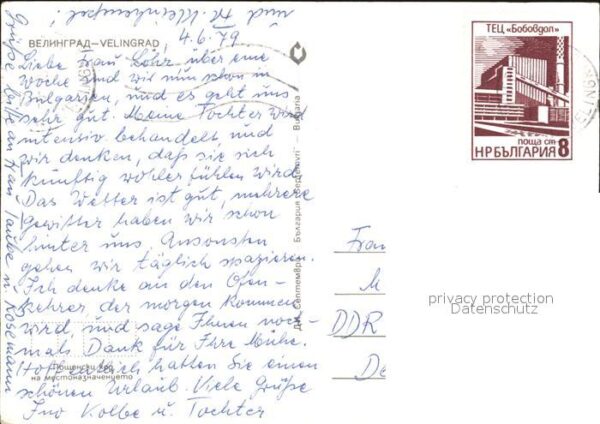 und H. Kleinhempel!
ВЕЛИНГРАД–VELINGRAD
4.6.79
Liebe Frau Lohr, über eine
Woche sind wir nun schon in
Bulgarien, und es geht uns
sehr gut. Meine Tochter wird
intensiv behandelt und
wir denken, daß sie sich
künftig wohler fühlen wird.
Das Wetter ist gut, mehrere
Gewitter haben wir schon
hinter uns. Ansonsten
gehen wir täglich spazieren.
Ich denke an den Ofen-
kehrer der morgen kommen
wird, und sage Ihnen noch-
mals Dank für Ihre Mühe.
Hoffentlich hatten Sie einen
schönen Urlaub. Viele Grüße
Ino Kolbe u. Tochter
Grüße bitte an Frau Taube u. Rosemann
Пощенски код
на местоназначението
ДП „Септември“ България Bulgaria
ТЕЦ «Бобовдол»
поща ст
НРБЪЛГАРИЯ 8
Frau
M
DDR
De
privacy protection
Datenschutz